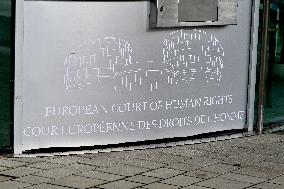 EUROPEAN COURT OF HUMAN RIGHTS
COUR EUROPÉENNE DES DROITS DE L'HOMME